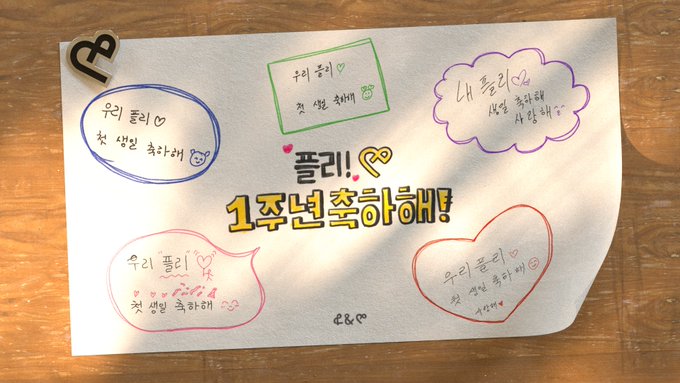 우리 플리♡
첫 생일 축하해
우리 플리♡
첫 생일 축하해
내 플리♡
생일 축하해
사랑해
플리!
1주년축하해!
우리 "플리"♡
첫 생일 축하해
우리플리♡
첫 생일 축하해